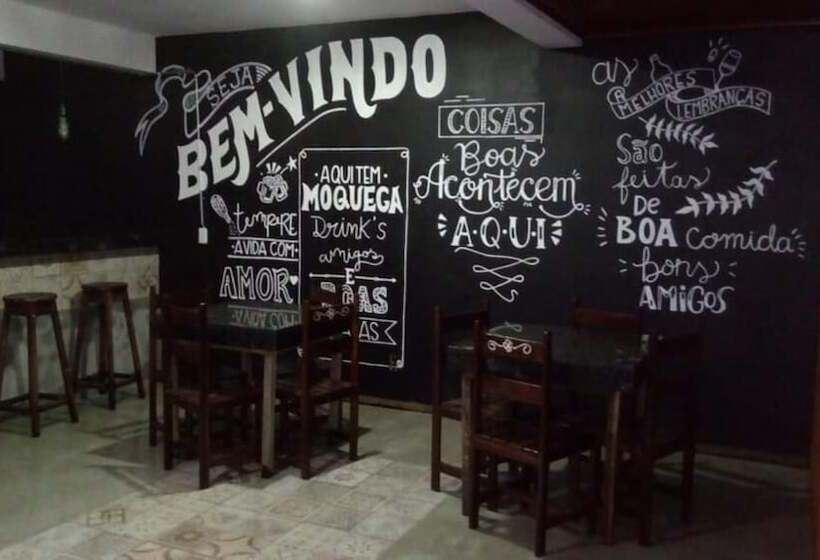 SEJA
BEM-VINDO
tempere
A VIDA COM
AMOR
AQUI TEM
MOQUEGA
Drink's
amigos
E
COISAS
Boas
Acontecem
A·QUI
as
MELHORES
LEMBRANÇAS
São
feitas
DE
BOA comida
bons
AMIGOS